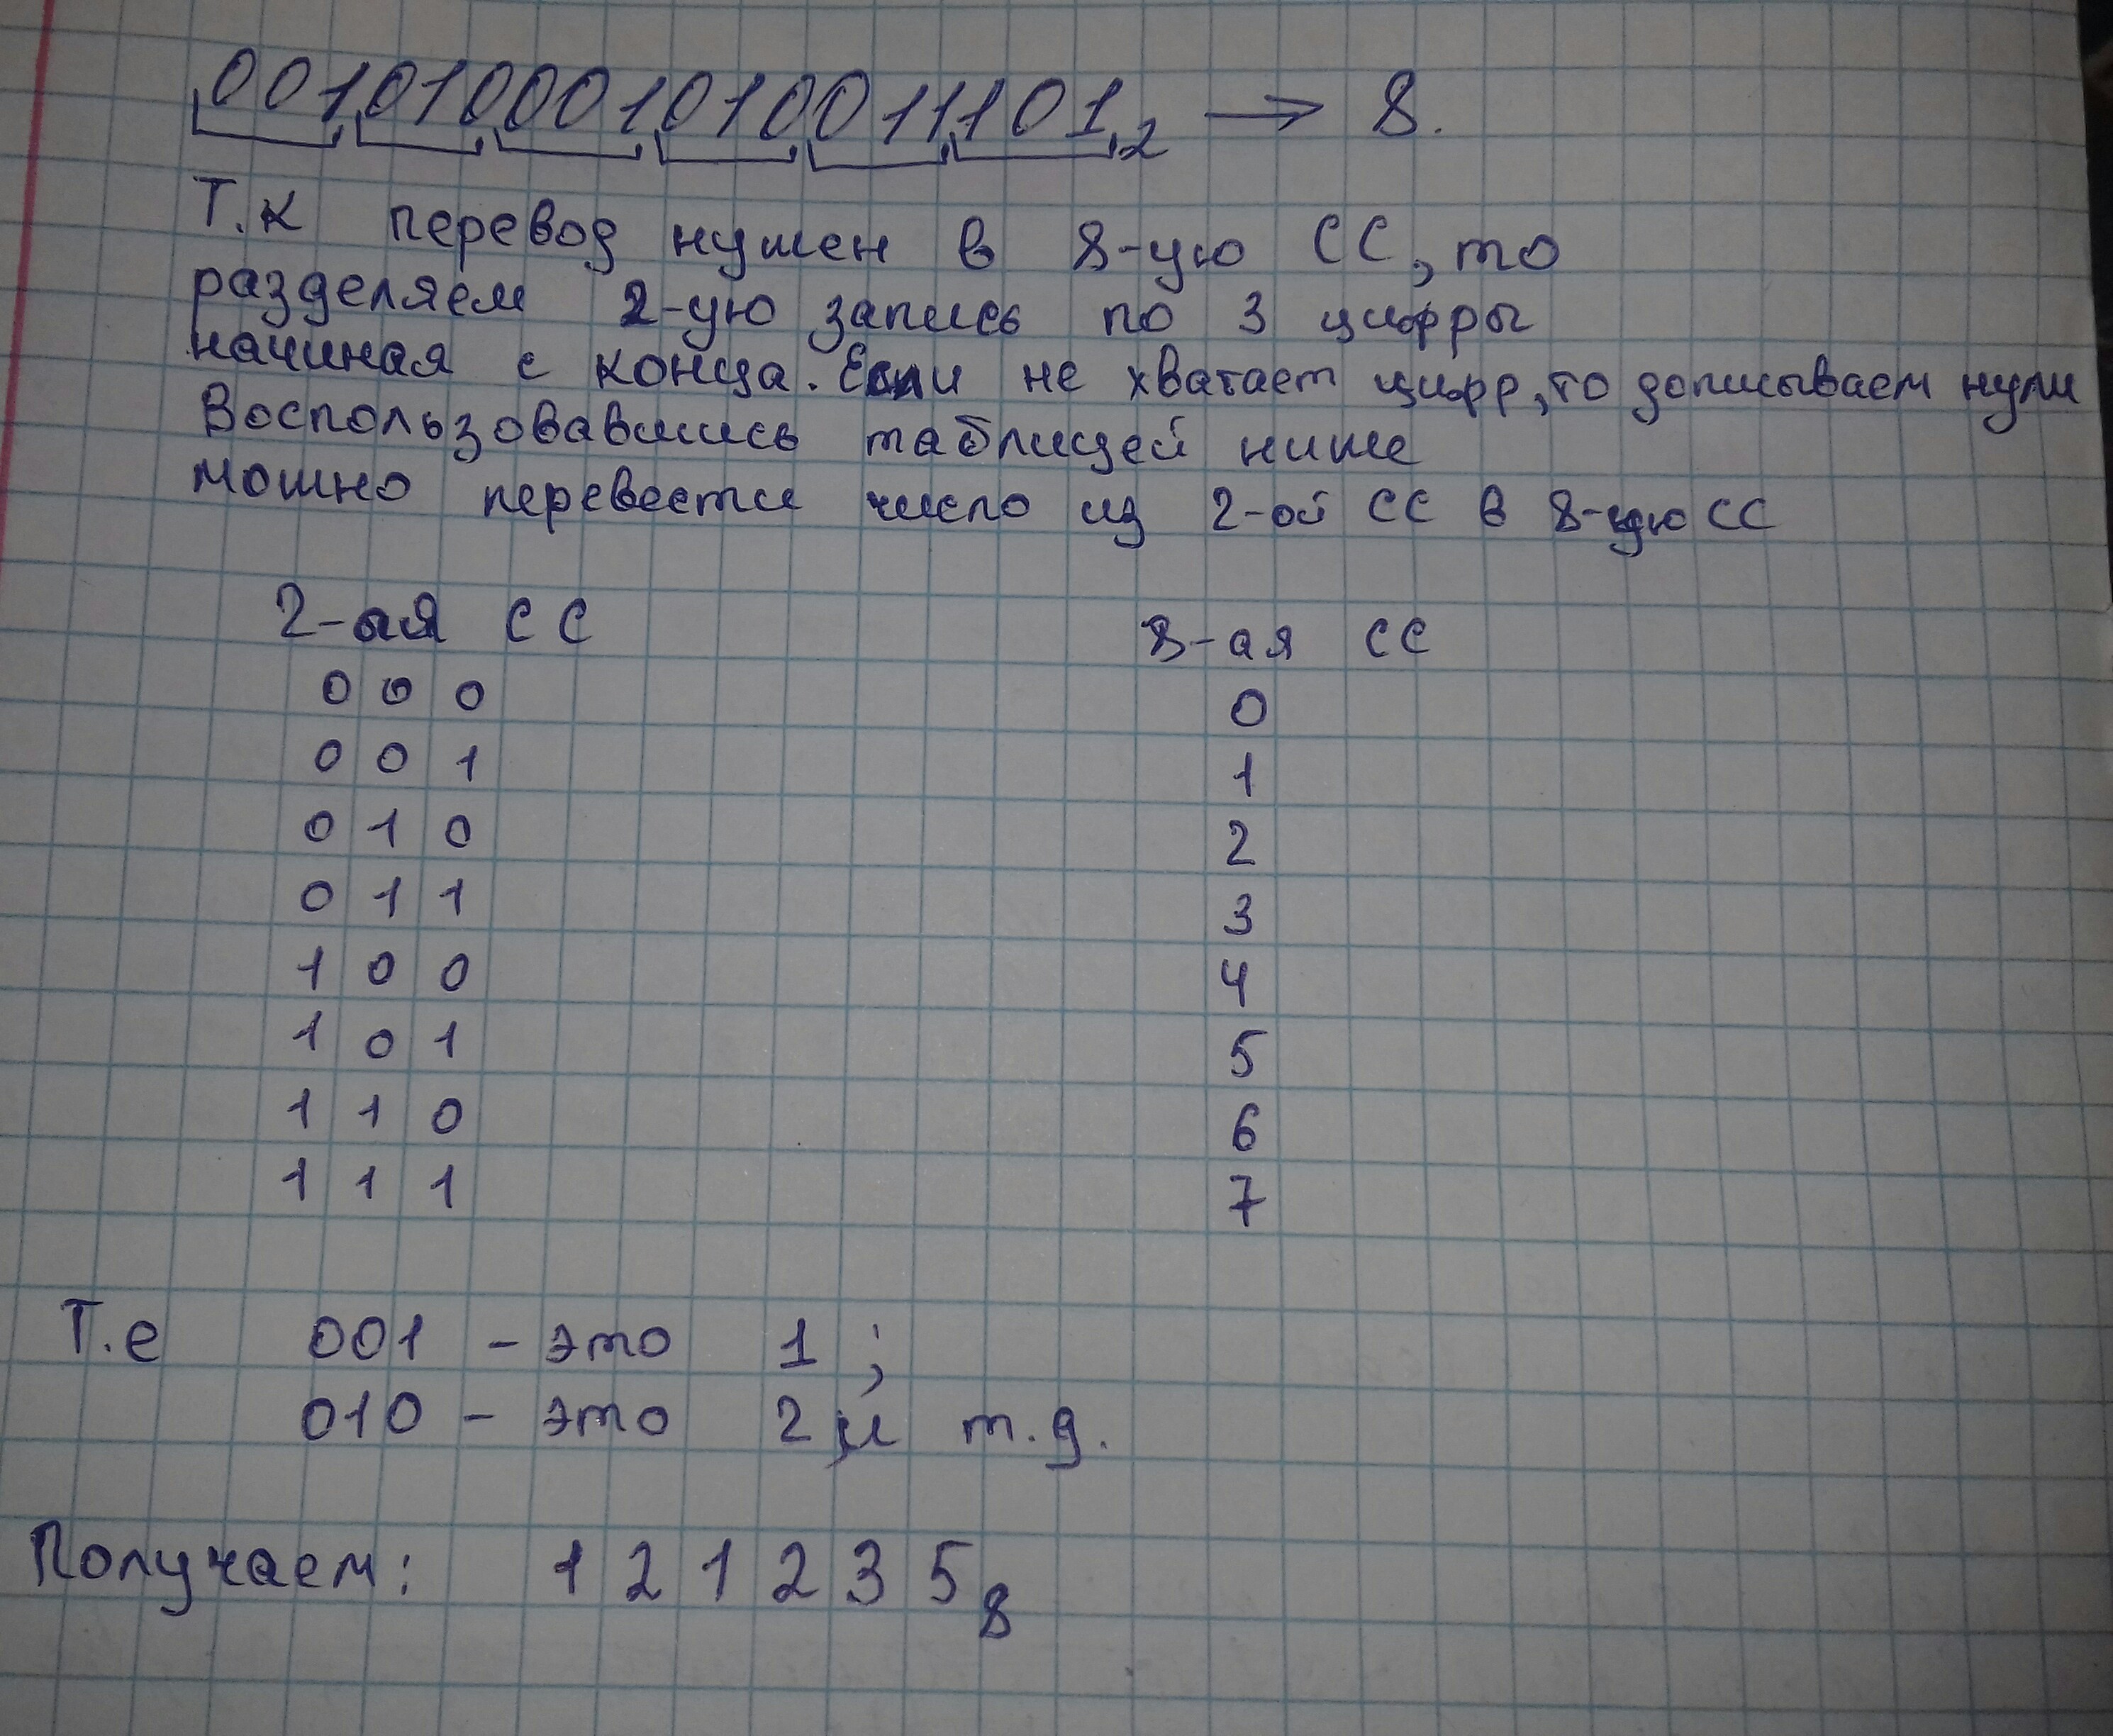 001010001010011101₂ → 8.
Т.к перевод нужен в 8-ую СС, то
разделяем 2-ую запись по 3 цифры
начиная с конца. Если не хватает цифр, то дописываем нули
Воспользовавшись таблицей ниже
можно перевести число из 2-ой СС в 8-ую СС
2-ая СС 8-ая СС
0 0 0 0
0 0 1 1
0 1 0 2
0 1 1 3
1 0 0 4
1 0 1 5
1 1 0 6
1 1 1 7
Т.е 001 - это 1;
010 - это 2 и т.д.
Получаем: 1 2 1 2 3 5₈